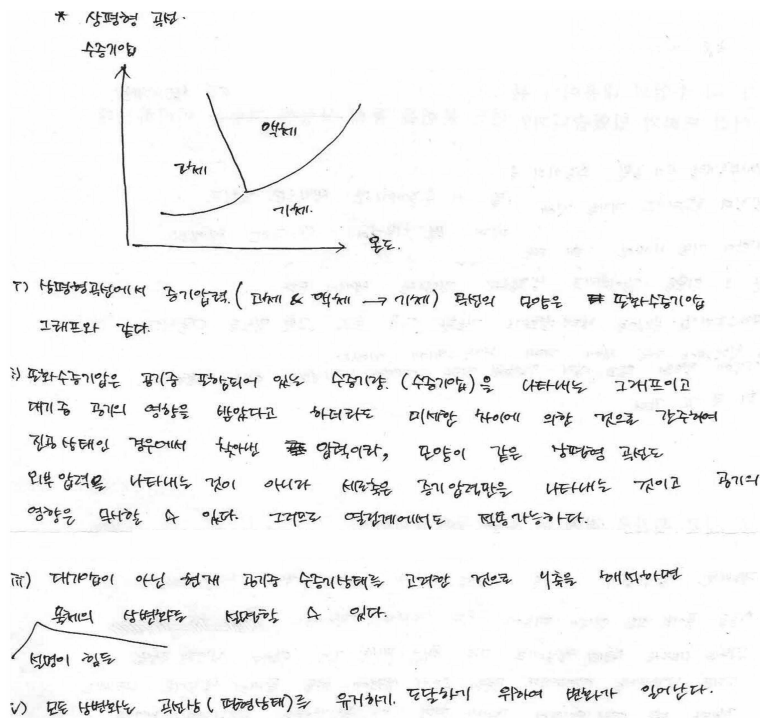 * 상평형 곡선.
수증기압
고체
액체
기체.
온도.
i) 상평형곡선에서 증기압력. (고체 & 액체 → 기체) 곡선의 모양은 포화수증기압
그래프와 같다.
ii) 포화수증기압은 공기중 포함되어 있는 수증기량. (수증기압)을 나타내는 그래프이고
대기중 공기의 영향을 받았다고 하더라도 미세한 차이에 의한 것으로 간주하여
진공상태인 경우에서 찾아낸 압력이라, 모양이 같은 상평형 곡선도
외부압력을 나타내는 것이 아니라 세로축은 증기압력만을 나타내는 것이고 공기의
영향은 무시할 수 있다. 그러므로 열린계에서도 적용가능하다.
iii) 대기압이 아닌 현재 공기중 수증기상태를 고려한 것으로 y축을 해석하면
물체의 상변화를 설명할 수 있다.
설명이 힘듦
iv) 모든 상변화는 곡선상(평형상태)를 유지하기. 도달하기 위하여 변화가 일어난다.